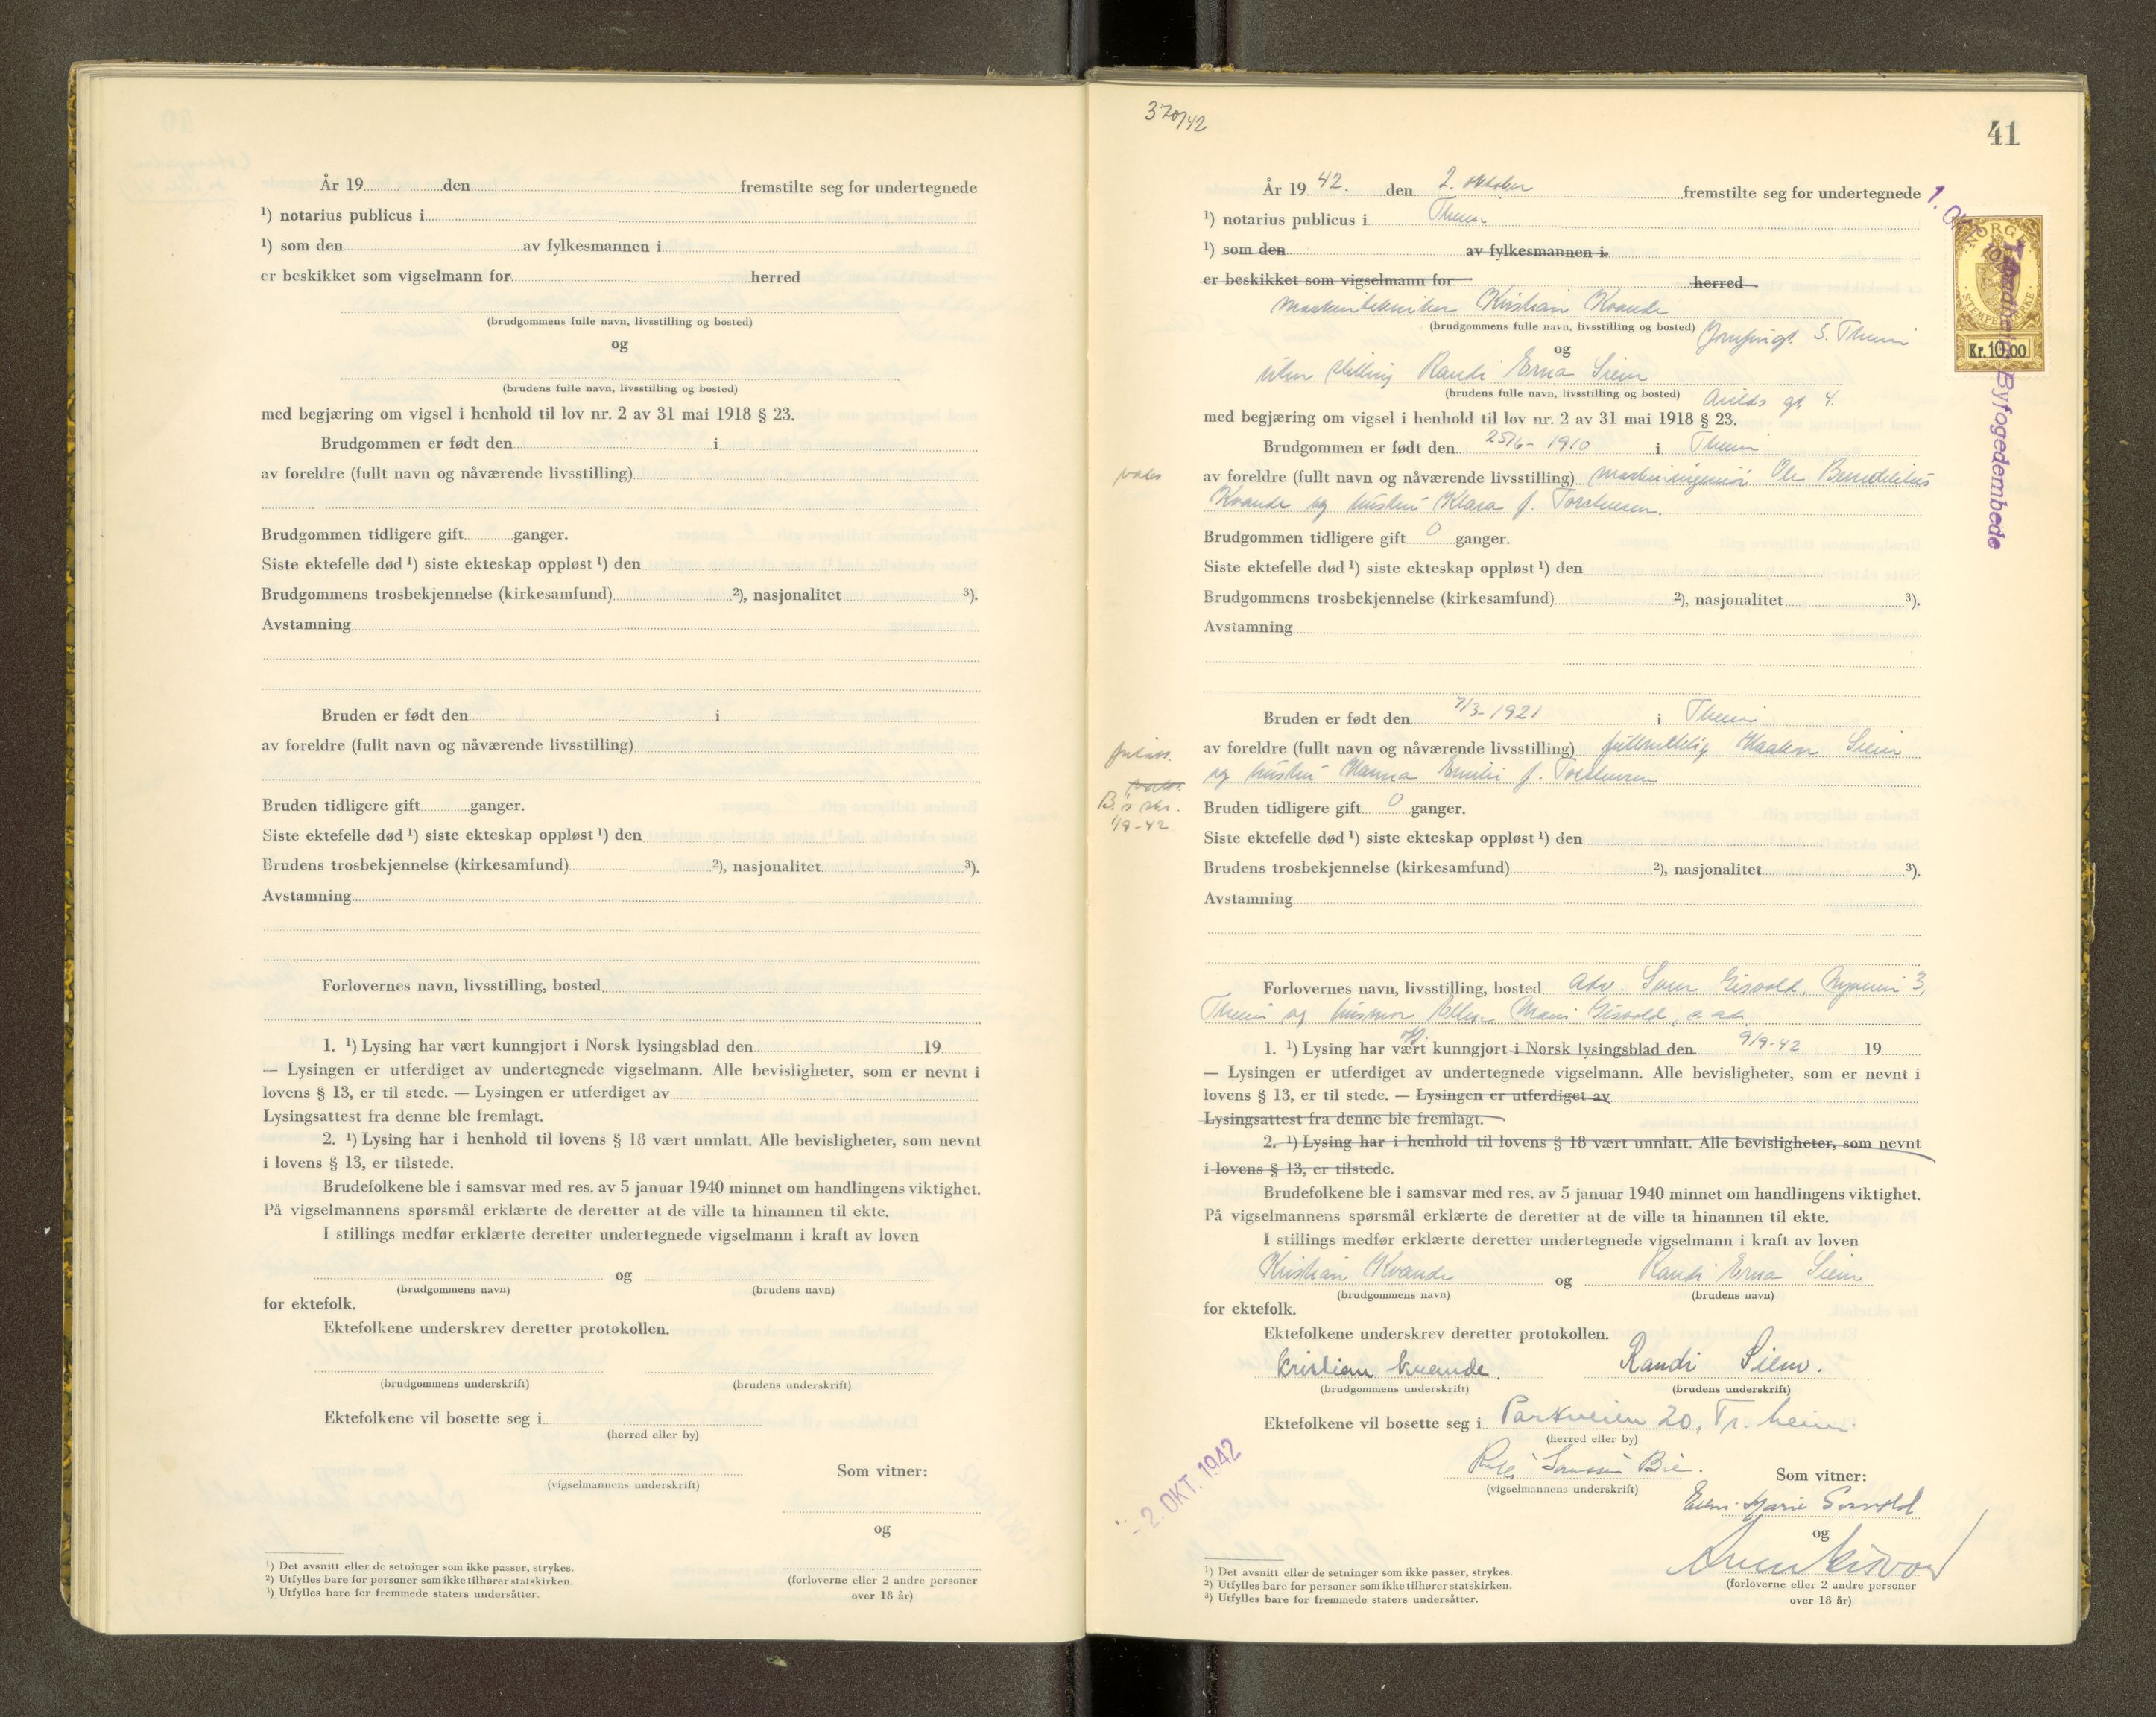 År 19 den fremstilte seg for undertegnede
¹) notarius publicus i
¹) som den av fylkesmannen i
er beskikket som vigselmann for herred
(brudgommens fulle navn, livsstilling og bosted)
og
(brudens fulle navn, livsstilling og bosted)
med begjæring om vigsel i henhold til lov nr. 2 av 31 mai 1918 § 23.
Brudgommen er født den i
av foreldre (fullt navn og nåværende livsstilling)
Brudgommen tidligere gift ganger.
Siste ektefelle død ¹) siste ekteskap oppløst ¹) den
Brudgommens trosbekjennelse (kirkesamfund) ²), nasjonalitet ³).
Avstamning
Bruden er født den i
av foreldre (fullt navn og nåværende livsstilling)
Bruden tidligere gift ganger.
Siste ektefelle død ¹) siste ekteskap oppløst ¹) den
Brudens trosbekjennelse (kirkesamfund) ²), nasjonalitet ³).
Avstamning
Forlovernes navn, livsstilling, bosted
1. ¹) Lysing har vært kunngjort i Norsk lysingsblad den 19
— Lysingen er utferdiget av undertegnede vigselmann. Alle bevisligheter, som er nevnt i
lovens § 13, er til stede. — Lysingen er utferdiget av
Lysingsattest fra denne ble fremlagt.
2. ¹) Lysing har i henhold til lovens § 18 vært unnlatt. Alle bevisligheter, som nevnt
i lovens § 13, er tilstede.
Brudefolkene ble i samsvar med res. av 5 januar 1940 minnet om handlingens viktighet.
På vigselmannens spørsmål erklærte de deretter at de ville ta hinannen til ekte.
I stillings medfør erklærte deretter undertegnede vigselmann i kraft av loven
og
(brudgommens navn) (brudens navn)
for ektefolk.
Ektefolkene underskrev deretter protokollen.
(brudgommens underskrift) (brudens underskrift)
Ektefolkene vil bosette seg i
(herred eller by)
Som vitner:
(vigselmannens underskrift)
og
¹) Det avsnitt eller de setninger som ikke passer, strykes.
²) Utfylles bare for personer som ikke tilhører statskirken.
³) Utfylles bare for fremmede staters undersåtter.
(forloverne eller 2 andre personer
over 18 år)
370/42
41
År 19 42. den 2. oktober fremstilte seg for undertegnede
¹) notarius publicus i Theim
¹) som den av fylkesmannen i
er beskikket som vigselmann for herred
1. OKT
NORGE
STEMPELMERKE
Kr. 10,00
Trondheim Byfogedembede
maskintekniker Kristian Kvande
(brudgommens fulle navn, livsstilling og bosted) Jomfrugt. 5. Theim
og
uten stilling Randi Erna Siem
(brudens fulle navn, livsstilling og bosted) Arilds gt. 4.
med begjæring om vigsel i henhold til lov nr. 2 av 31 mai 1918 § 23.
Brudgommen er født den 25/6-1910 i Theim
av foreldre (fullt navn og nåværende livsstilling) maskiningeniør Ole Benediktus
Kvande og hustru Klara f. Torstensen.
Brudgommen tidligere gift 0 ganger.
Siste ektefelle død ¹) siste ekteskap oppløst ¹) den
Brudgommens trosbekjennelse (kirkesamfund) ²), nasjonalitet ³).
Avstamning
Bruden er født den 7/3-1921 i Theim
av foreldre (fullt navn og nåværende livsstilling) fullmektig Haakon Siem
og hustru Hanna Emilie f. Torstensen
Bruden tidligere gift 0 ganger.
1/9-42
Siste ektefelle død ¹) siste ekteskap oppløst ¹) den
Brudens trosbekjennelse (kirkesamfund) ²), nasjonalitet ³).
Avstamning
Forlovernes navn, livsstilling, bosted adv. Sven Gisvold, 3,
Theim og husmor Ellen Marie Gisvold,
1. ¹) Lysing har vært kunngjort i Norsk lysingsblad den 9/9-42 19
— Lysingen er utferdiget av undertegnede vigselmann. Alle bevisligheter, som er nevnt i
lovens § 13, er til stede. — Lysingen er utferdiget av
Lysingsattest fra denne ble fremlagt.
2. ¹) Lysing har i henhold til lovens § 18 vært unnlatt. Alle bevisligheter, som nevnt
i lovens § 13, er tilstede.
Brudefolkene ble i samsvar med res. av 5 januar 1940 minnet om handlingens viktighet.
På vigselmannens spørsmål erklærte de deretter at de ville ta hinannen til ekte.
I stillings medfør erklærte deretter undertegnede vigselmann i kraft av loven
Kristian Kvande og Randi Erna Siem
(brudgommens navn) (brudens navn)
for ektefolk.
Ektefolkene underskrev deretter protokollen.
Kristian Kvande. Randi Siem.
(brudgommens underskrift) (brudens underskrift)
Ektefolkene vil bosette seg i Parkveien 20, Tr.heim.
(herred eller by)
- 2. OKT. 1942
Bie.
Som vitner:
(vigselmannens underskrift)
Ellen-Marie Gisvold
og
¹) Det avsnitt eller de setninger som ikke passer, strykes.
²) Utfylles bare for personer som ikke tilhører statskirken.
³) Utfylles bare for fremmede staters undersåtter.
(forloverne eller 2 andre personer
over 18 år)